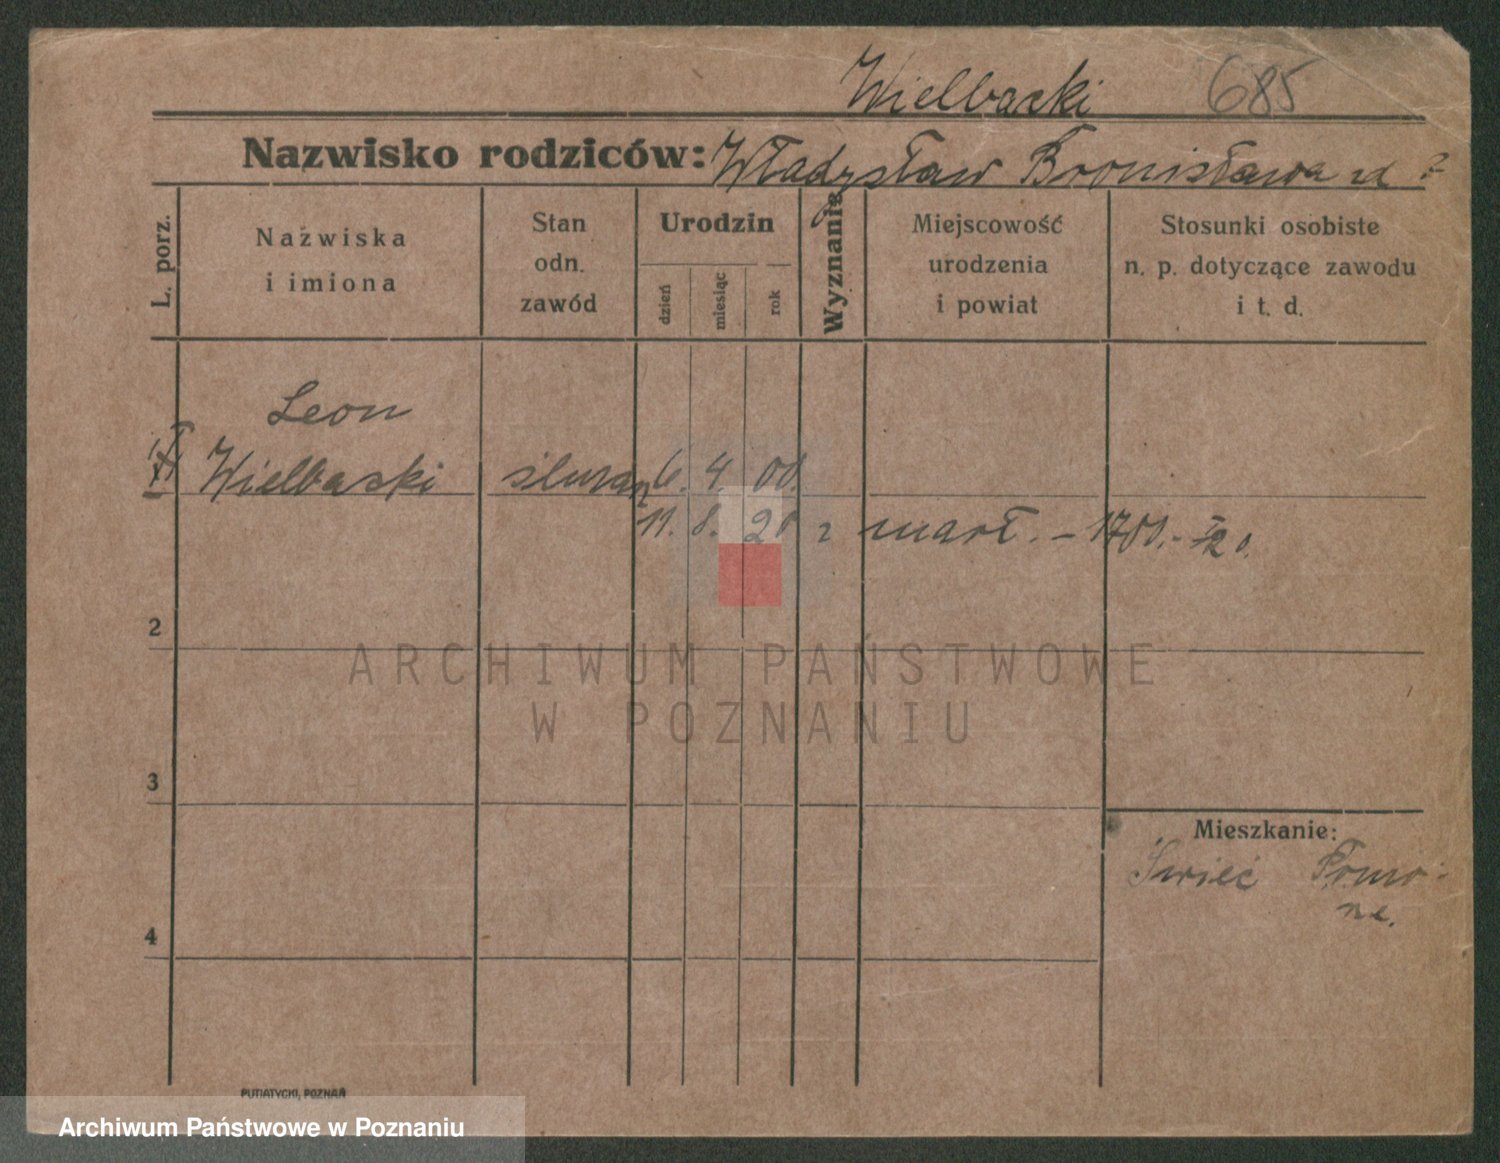 Wielbacki 685
Nazwisko rodziców: Władysław Bronisława zd ?
L. porz.
Nazwiska
i imiona
Stan
odn.
zawód
Urodzin
dzień
miesiąc
rok
Wyznanie
Miejscowość
urodzenia
i powiat
Stosunki osobiste
n. p. dotyczące zawodu
i t. d.
Leon
1 Wielbacki 6. 4. 00.
11. 8. 20 zmarł. - 1701.-
2
3
4
Mieszkanie:
Świeć
ARCHIWUM PAŃSTWOWE
W POZNANIU
PUTIATYCKI, POZNAŃ
Archiwum Państwowe w Poznaniu